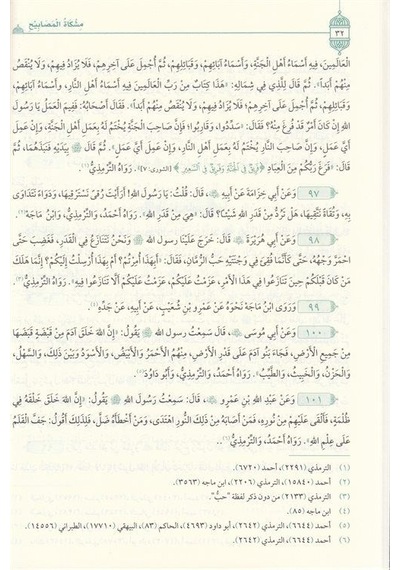 ٣٢ مشكاة المصابيح
العَالَمِينَ، فِيهِ أَسْمَاءُ أَهْلِ الْجَنَّةِ، وَأَسْمَاءُ آبَائِهِمْ، وَقَبَائِلِهِمْ، ثُمَّ أُجْمِلَ عَلَى آخِرِهِمْ، فَلَا يُزَادُ فِيهِمْ، وَلَا يُنْقَصُ
مِنْهُمْ أَبَداً». ثُمَّ قَالَ لِلَّذِي فِي شِمَالِهِ: «هَذَا كِتَابٌ مِنْ رَبِّ الْعَالَمِينَ فِيهِ أَسْمَاءُ أَهْلِ النَّارِ، وَأَسْمَاءُ آبَائِهِمْ،
وَقَبَائِلِهِمْ، ثُمَّ أُجْمِلَ عَلَى آخِرِهِمْ؛ فَلَا يُزَادُ فِيهِمْ، وَلَا يُنْقَصُ مِنْهُمْ أَبَداً». فَقَالَ أَصْحَابُهُ: فَفِيمَ الْعَمَلُ يَا رَسُولَ
اللهِ إِنْ كَانَ أَمْرٌ قَدْ فُرِغَ مِنْهُ؟ فَقَالَ: «سَدِّدُوا، وَقَارِبُوا؛ فَإِنَّ صَاحِبَ الْجَنَّةِ يُخْتَمُ لَهُ بِعَمَلِ أَهْلِ الْجَنَّةِ، وَإِنْ عَمِلَ
أَيَّ عَمَلٍ، وَإِنَّ صَاحِبَ النَّارِ يُخْتَمُ لَهُ بِعَمَلِ أَهْلِ النَّارِ، وَإِنْ عَمِلَ أَيَّ عَمَلٍ». ثُمَّ قَالَ ﷺ بِيَدَيْهِ فَنَبَذَهُمَا، ثُمَّ
قَالَ: «فَرَغَ رَبُّكُمْ مِنَ الْعِبَادِ ﴿فَرِيقٌ فِي الْجَنَّةِ وَفَرِيقٌ فِي السَّعِيرِ﴾ (الشورى: ٧)». رَوَاهُ التِّرْمِذِيُّ(١).
٩٧ وَعَنْ أَبِي خِزَامَةَ عَنْ أَبِيهِ، قَالَ: قُلْتُ: يَا رَسُولَ اللهِ! أَرَأَيْتَ رُقىً نَسْتَرْقِيهَا، وَدَوَاءً نَتَدَاوَى
بِهِ، وَتُقَاةً نَتَّقِيهَا، هَلْ تَرُدُّ مِنْ قَدَرِ اللهِ شَيْئاً؟ قَالَ: «هِيَ مِنْ قَدَرِ اللهِ». رَوَاهُ أَحْمَدُ، وَالتِّرْمِذِيُّ، وَابْنُ مَاجَهْ(٢).
٩٨ وَعَنْ أَبِي هُرَيْرَةَ، قَالَ: خَرَجَ عَلَيْنَا رسول الله ﷺ وَنَحْنُ نَتَنَازَعُ فِي الْقَدَرِ، فَغَضِبَ حَتَّى
احْمَرَّ وَجْهُهُ، حَتَّى كَأَنَّمَا فُقِئَ فِي وَجْنَتَيْهِ حَبُّ الرُّمَّانِ، فَقَالَ: «أَبِهَذَا أُمِرْتُمْ؟ أَمْ بِهَذَا أُرْسِلْتُ إِلَيْكُمْ؟ إِنَّمَا هَلَكَ
مَنْ كَانَ قَبْلَكُمْ حِينَ تَنَازَعُوا فِي هَذَا الْأَمْرِ، عَزَمْتُ عَلَيْكُمْ، عَزَمْتُ عَلَيْكُمْ أَلَّا تَنَازَعُوا فِيهِ». رَوَاهُ التِّرْمِذِيُّ(٣)
٩٩ وَرَوَى ابْنُ مَاجَهْ نَحْوَهُ عَنْ عَمْرِو بْنِ شُعَيْبٍ، عَنْ أَبِيهِ، عَنْ جَدِّهِ(٤).
١٠٠ وَعَنْ أَبِي مُوسَى، قَالَ: سَمِعْتُ رسول الله ﷺ يَقُولُ: «إِنَّ اللهَ خَلَقَ آدَمَ مِنْ قَبْضَةٍ قَبَضَهَا
مِنْ جَمِيعِ الْأَرْضِ، فَجَاءَ بَنُو آدَمَ عَلَى قَدْرِ الْأَرْضِ، مِنْهُمُ الْأَحْمَرُ وَالْأَبْيَضُ، وَالْأَسْوَدُ وَبَيْنَ ذَلِكَ، وَالسَّهْلُ،
وَالْحَزْنُ، وَالْخَبِيثُ، وَالطَّيِّبُ». رَوَاهُ أَحْمَدُ، وَالتِّرْمِذِيُّ، وَأَبُو دَاوُدَ(٥).
١٠١ وَعَنْ عَبْدِ اللهِ بْنِ عَمْرٍو، قَالَ: سَمِعْتُ رَسُولَ اللهِ ﷺ يَقُولُ: «إِنَّ اللهَ خَلَقَ خَلْقَهُ فِي
ظُلْمَةٍ، فَأَلْقَى عَلَيْهِمْ مِنْ نُورِهِ، فَمَنْ أَصَابَهُ مِنْ ذَلِكَ النُّورِ اهْتَدَى، وَمَنْ أَخْطَأَهُ ضَلَّ، فَلِذَلِكَ أَقُولُ: جَفَّ الْقَلَمُ
عَلَى عِلْمِ اللهِ». رَوَاهُ أَحْمَدُ، وَالتِّرْمِذِيُّ(٦).
(١) الترمذي (٢٢٩١)، أحمد (٦٧٢٠).
(٢) أحمد (١٥٨٤٠)، الترمذي (٢٢٠٦)، ابن ماجه (٣٥٦٣).
(٣) الترمذي (٢١٣٣) من دون ذكر لفظة "حبّ".
(٤) ابن ماجه (٨٥).
(٥) أحمد (٦٦٤٤)، الترمذي (٢٦٤٢)، أبو داود (٤٦٩٣)، الحاكم (٨٣)، البيهقي (١٧٧١٠)، الطبراني (١٤٥٥٦).
(٦) أحمد (٦٦٤٤)، الترمذي (٢٦٤٢).